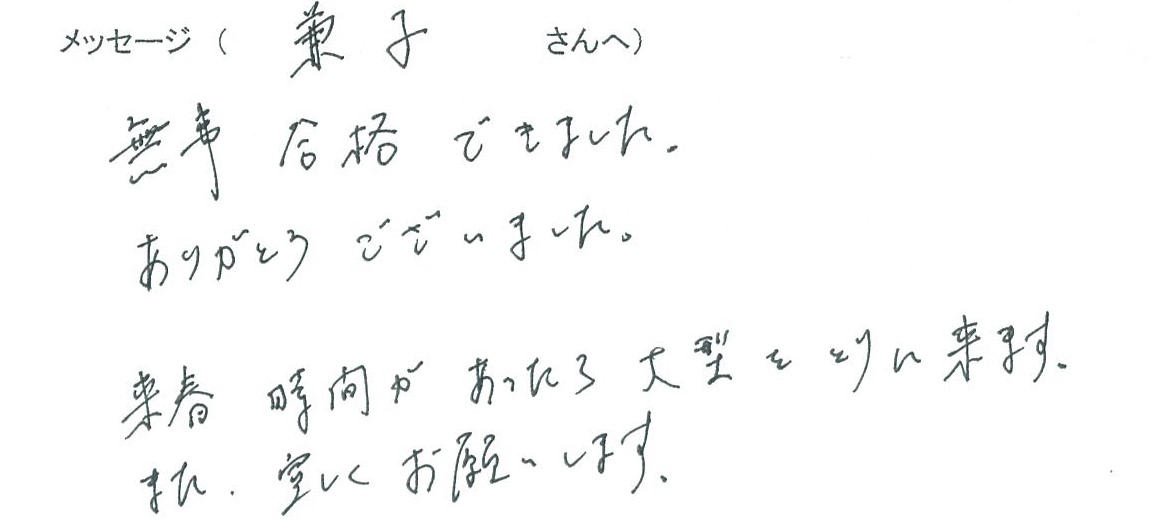 メッセージ（ 兼子 さんへ）
無事 合格 できました。
ありがとう ございました。
来春 時間が あったら 大型を とりに 来ます。
また、宜しく お願いします。